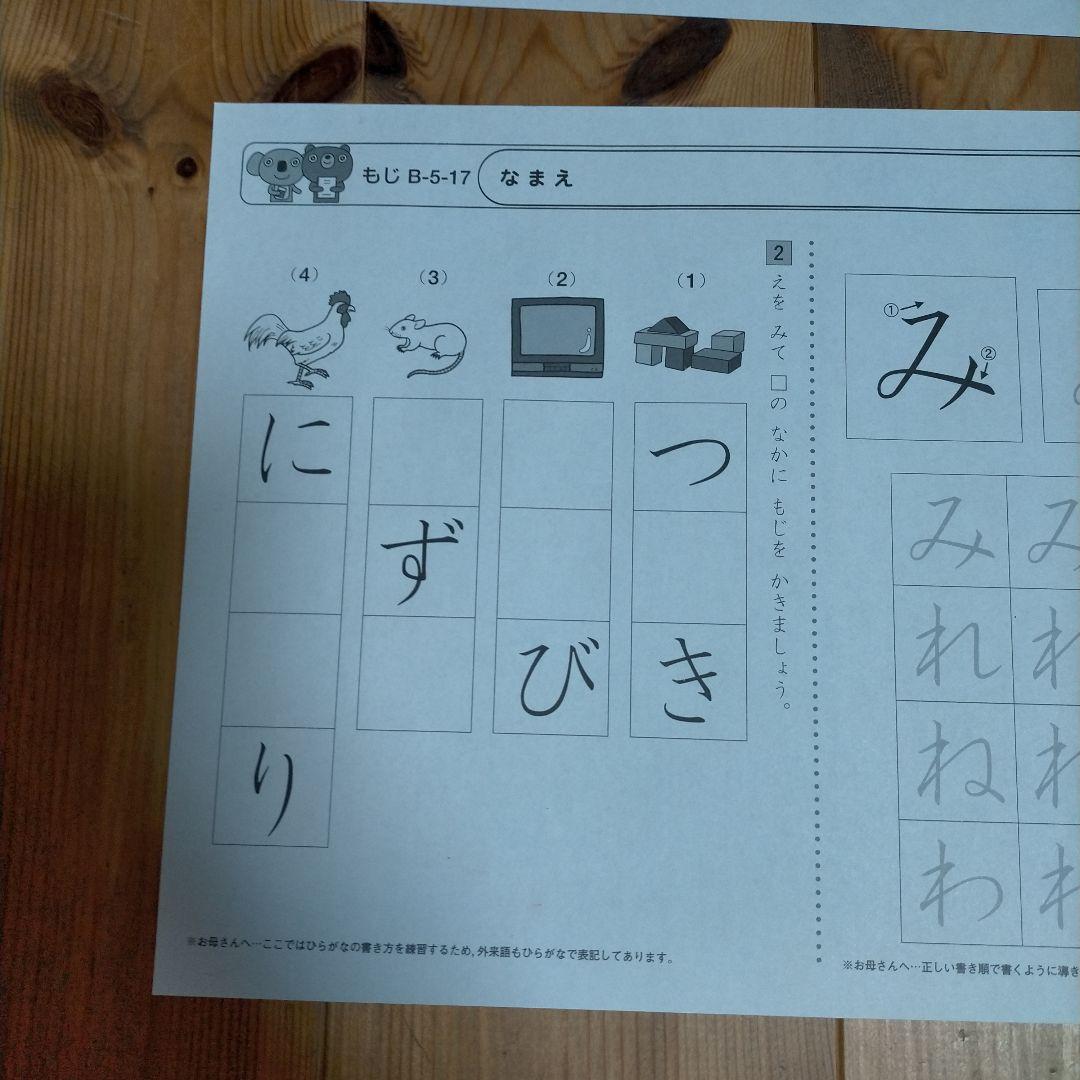 もじ B-5-17 なまえ
①
②
み
み み
れ れ
ね
わ
※お母さんへ…正しい書き順で書くように導き
2 えを みて □の なかに もじを かきましょう。
(1)
つ
き
(2)
び
(3)
ず
(4)
に
り
※お母さんへ…ここではひらがなの書き方を練習するため,外来語もひらがなで表記してあります。